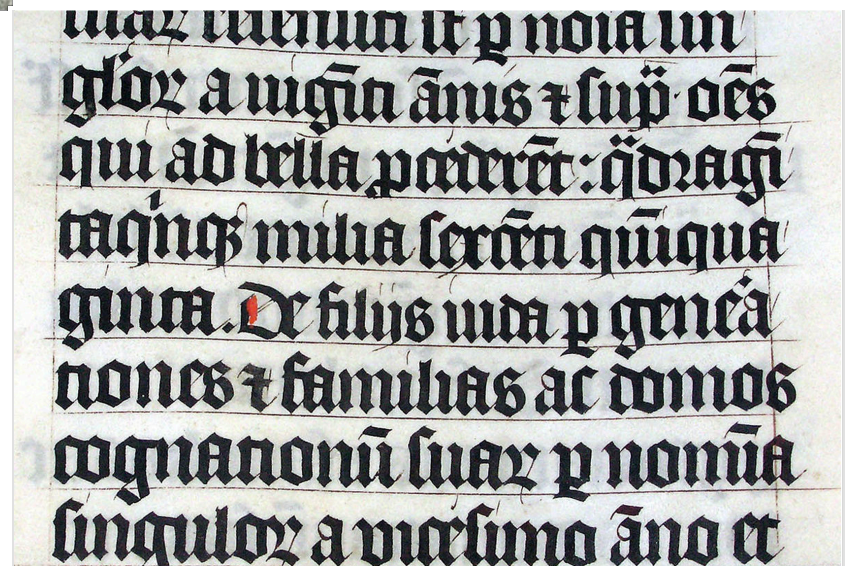 suaꝝ recensiti st ꝑ noīa sin
gl'oꝝ a uigīti ānis ⁊ sup̄· oēs
qui ad bella ꝓcederēt: q̈dragī
taqͥnqꝫ milia sexcēti qūiqua
ginta. De filijs iuda ꝑ gen̾a
tiones ⁊ familias ac domos
cognationū suaꝝ ꝑ nomīa
singuloꝝ a vicesimo āno et